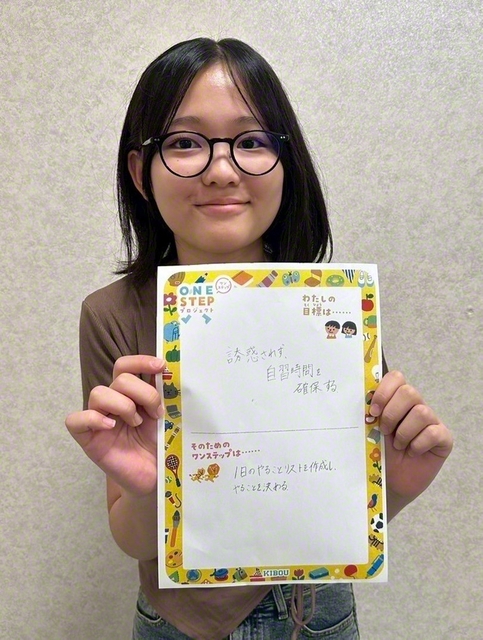 ONE
STEP
プロジェクト
わたしの
目標は……
もくひょう
誘惑されず、
自習時間を
確保する
そのための
ワンステップは……
1日のやることリストを作成し、
やることを決める
KIBOU